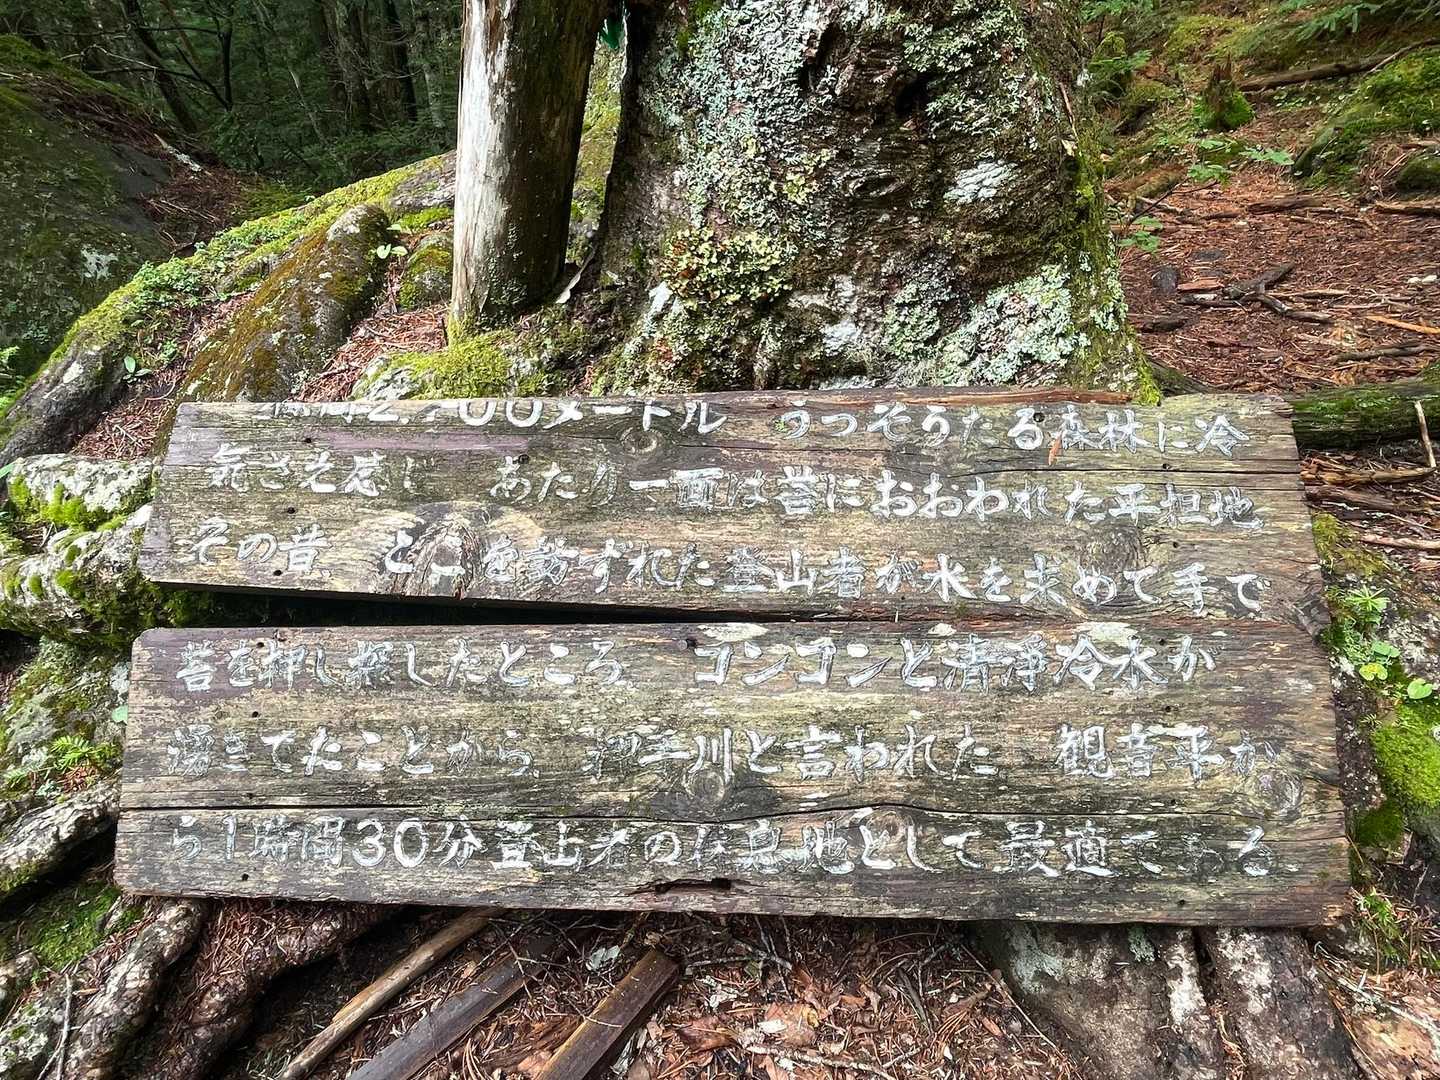 00メートル　うっそうたる森林に冷
気さえ感じ　あたり一面は苔におおわれた平担地
その昔、とこを訪ずれた登山者が水を求めて手で
苔を押し探したところ、コンコンと清浄冷水が
湧きてたことから、押手川と言われた　観音平か
ら1時間30分登山者の休息地として最適である